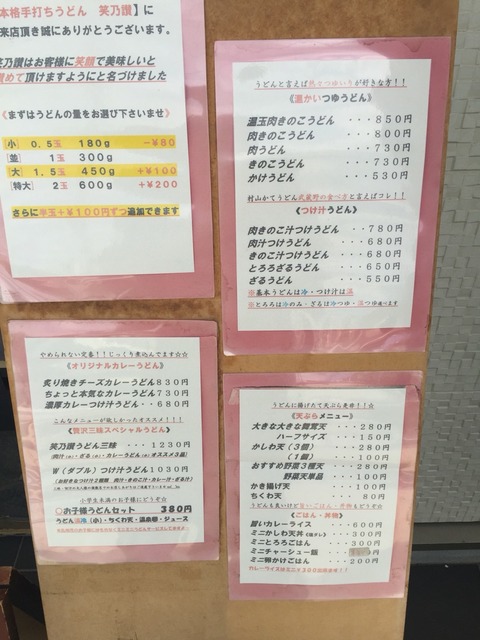 本格手打ちうどん 笑乃讃】に
来店頂き誠にありがとうございます。
笑乃讃はお客様に笑顔で美味しいと
讃めて頂けますようにと名づけました
《まずはうどんの量をお選び下さいませ》
小 0.5玉 180g −¥80
[並] 1玉 300g
大 1.5玉 450g +¥100
[特大] 2玉 600g +¥200
さらに半玉+¥100円ずつ追加できます
うどんと言えば熱々つゆいりが好きな方!!
《温かいつゆうどん》
温玉肉きのこうどん ・・・850円
肉きのこうどん ・・・800円
肉うどん ・・・730円
きのこうどん ・・・730円
かけうどん ・・・530円
村山かてうどん武蔵野の食べ方と言えばコレ!!
《つけ汁うどん》
肉きのこ汁つけうどん ・・・780円
肉汁つけうどん ・・・680円
きのこ汁つけうどん ・・・680円
とろろざるうどん ・・・650円
ざるうどん ・・・550円
※基本うどんは冷・つけ汁は温
※とろろは冷のみ・ざるは冷つゆ・温つゆ選べます
やめられない定番!!じっくり煮込んでます☆☆
《オリジナルカレーうどん》
炙り焼きチーズカレーうどん830円
ちょっと本気なカレーうどん730円
濃厚カレーつけ汁うどん・・680円
こんなメニューが欲しかったオススメ!!!
《贅沢三味スペシャルうどん》
笑乃讃うどん三味 ・・・1230円
W(ダブル)つけ汁うどん1030円
小学生未満のお子様にどうぞ☆
○お子様うどんセット 380円
うどん温冷(小)・ちくわ天・温泉卵・ジュース
うどんに揚げたて天ぷら是非!!☆
《天ぷらメニュー》
大きな大きな舞茸天 ・・・280円
ハーフサイズ ・・・150円
かしわ天(3個) ・・・280円
(1個) ・・・100円
おすすめ野菜3種天 ・・・280円
野菜天単品 ・・・100円
かき揚げ天 ・・・100円
ちくわ天 ・・・80円
うどんも良いけど旨いごはん・丼物もどうぞ
《ごはん・丼物》
旨いカレーライス ・・・600円
ミニかしわ天丼(塩ダレ) ・・・300円
ミニとろろごはん ・・・300円
ミニチャーシュー飯 ・・・
ミニ卵かけごはん ・・・200円
カレーライスはミニで380円出来ます!!